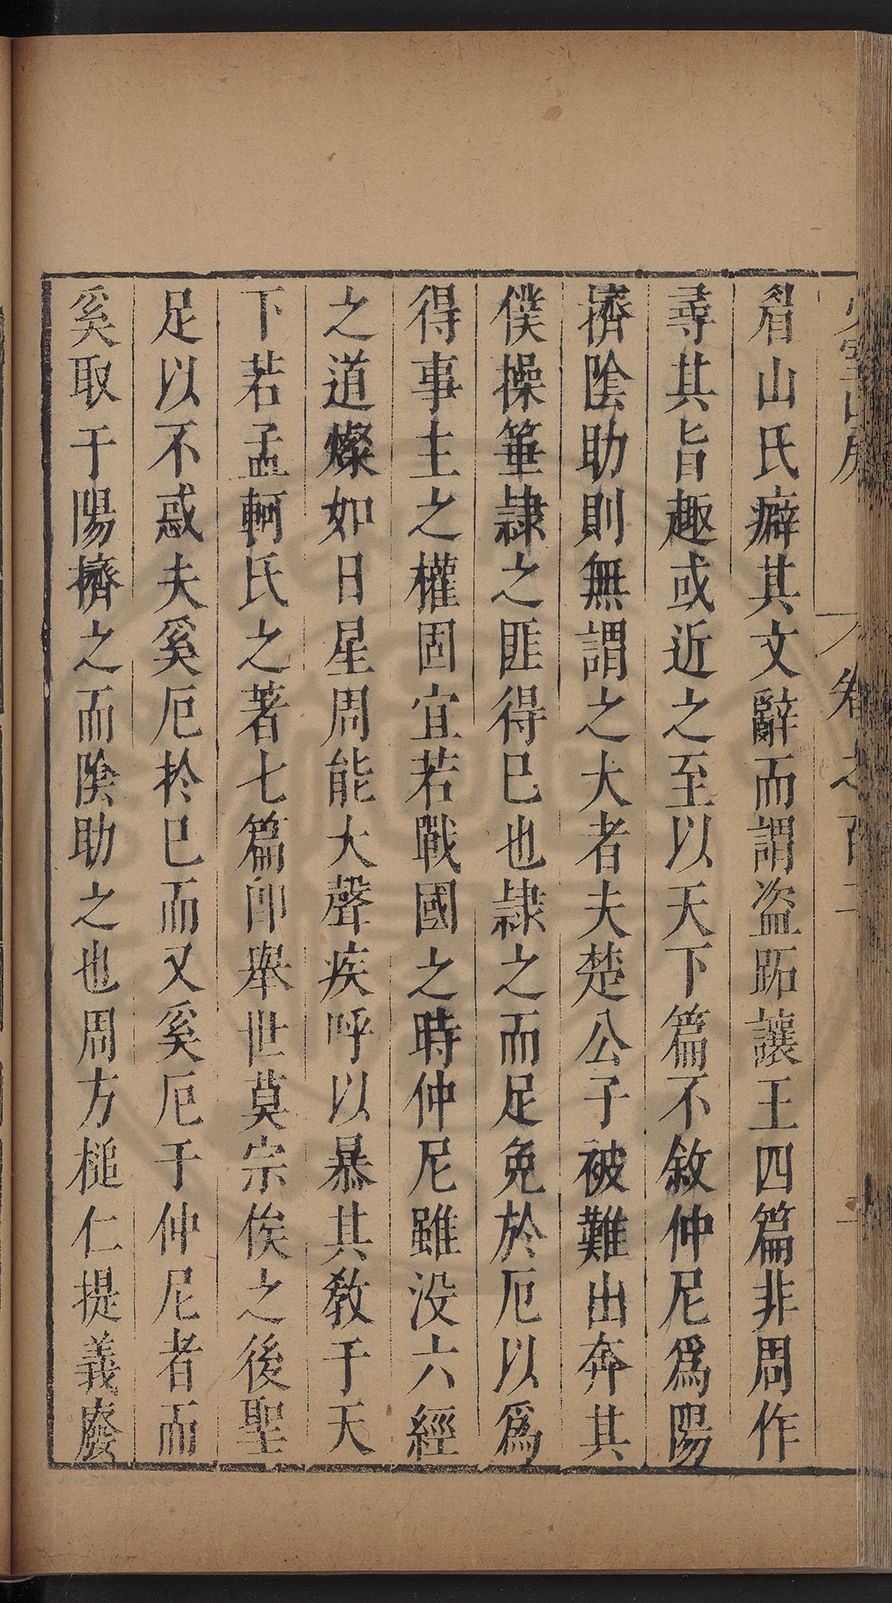 少室山房
卷之百二
眉山氏癖其文辭而謂盗跖讓王四篇非周作
尋其旨趣或近之至以天下篇不敘仲尼爲陽
擠陰助則無謂之大者夫楚公子被難出奔其
僕操箠隷之匪得巳也隷之而足免於厄以爲
得事主之權固宜若戰國之時仲尼雖没六經
之道燦如日星周能大聲疾呼以暴其敎于天
下若孟軻氏之著七篇卽舉世莫宗俟之後聖
足以不惑夫奚厄於巳而又奚厄于仲尼者而
奚取于陽擠之而陰助之也周方槌仁提義廢